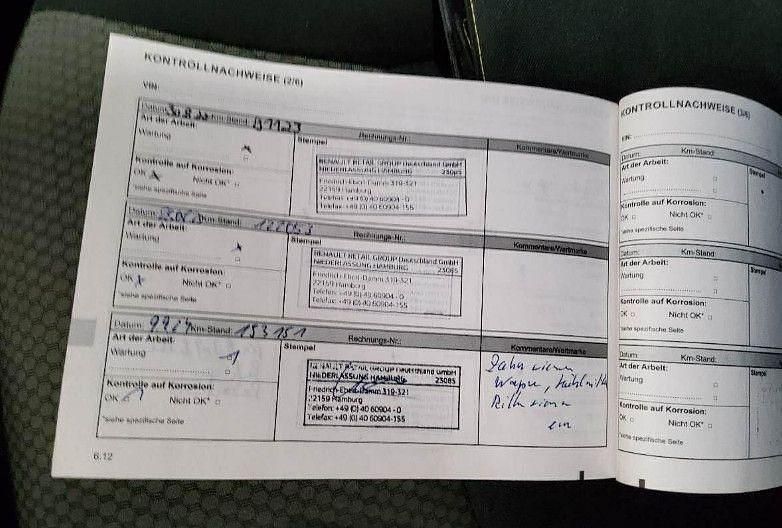 KONTROLLNACHWEISE (2/6)
VIN:
Datum: Km-Stand: Rechnungs-Nr.: Kommentare/Wertmarke
Art der Arbeit: Stempel
Wartung
Kontrolle auf Korrosion:
OK Nicht OK*
*siehe spezifische Seite
RENAULT RETAIL GROUP Deutschland GmbH
NIEDERLASSUNG HAMBURG 23085
Friedrich-Ebert-Damm 319-321
22159 Hamburg
Telefon: +49 (0) 40 60904 - 0
Telefax: +49 (0) 40 60904-155
Datum: Km-Stand: 122053 Rechnungs-Nr.: Kommentare/Wertmarke
Art der Arbeit: Stempel
Wartung
Kontrolle auf Korrosion:
OK Nicht OK*
*siehe spezifische Seite
RENAULT RETAIL GROUP Deutschland GmbH
NIEDERLASSUNG HAMBURG 23085
Friedrich-Ebert-Damm 319-321
22159 Hamburg
Telefon: +49 (0) 40 60904 - 0
Telefax: +49 (0) 40 60904-155
Datum: Km-Stand: 153151 Rechnungs-Nr.: Kommentare/Wertmarke
Art der Arbeit: Stempel
Wartung
Kontrolle auf Korrosion:
OK Nicht OK*
*siehe spezifische Seite
RENAULT RETAIL GROUP Deutschland GmbH
NIEDERLASSUNG HAMBURG 23085
Friedrich-Ebert-Damm 319-321
22159 Hamburg
Telefon: +49 (0) 40 60904 - 0
Telefax: +49 (0) 40 60904-155
6.12
KONTROLLNACHWEISE (3/6)
VIN:
Datum: Km-Stand:
Art der Arbeit: Stempel
Wartung
Kontrolle auf Korrosion:
OK Nicht OK*
*siehe spezifische Seite
Datum: Km-Stand:
Art der Arbeit: Stempel
Wartung
Kontrolle auf Korrosion:
OK Nicht OK*
*siehe spezifische Seite
Datum: Km-Stand:
Art der Arbeit: Stempel
Wartung
Kontrolle auf Korrosion:
OK Nicht OK*
*siehe spezifische Seite